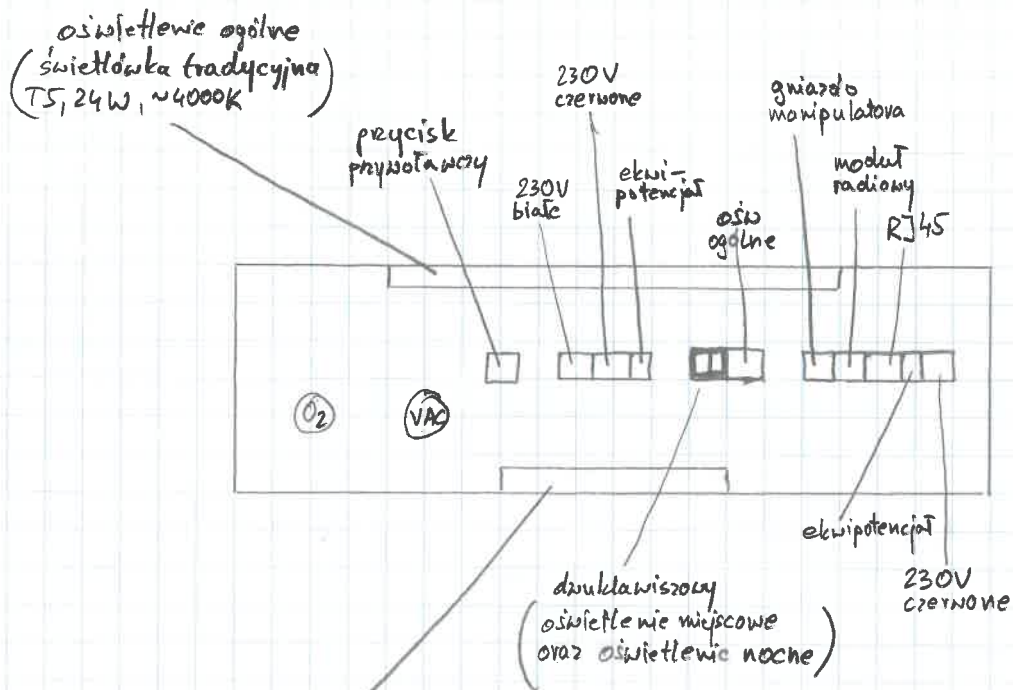 oświetlenie ogólne
(świetlówka tradycyjna
T5, 24W, ~4000K)
przycisk
przywoławczy
230V
białe
230V
czerwone
ekwi-
potencjał
ośw
ogólne
gniazdo
manipulatora
moduł
radiowy
RJ45
O2
VAC
ekwipotencjał
230V
czerwone
dwuklawiszowy
(oświetlenie miejscowe
oraz oświetlenie nocne)